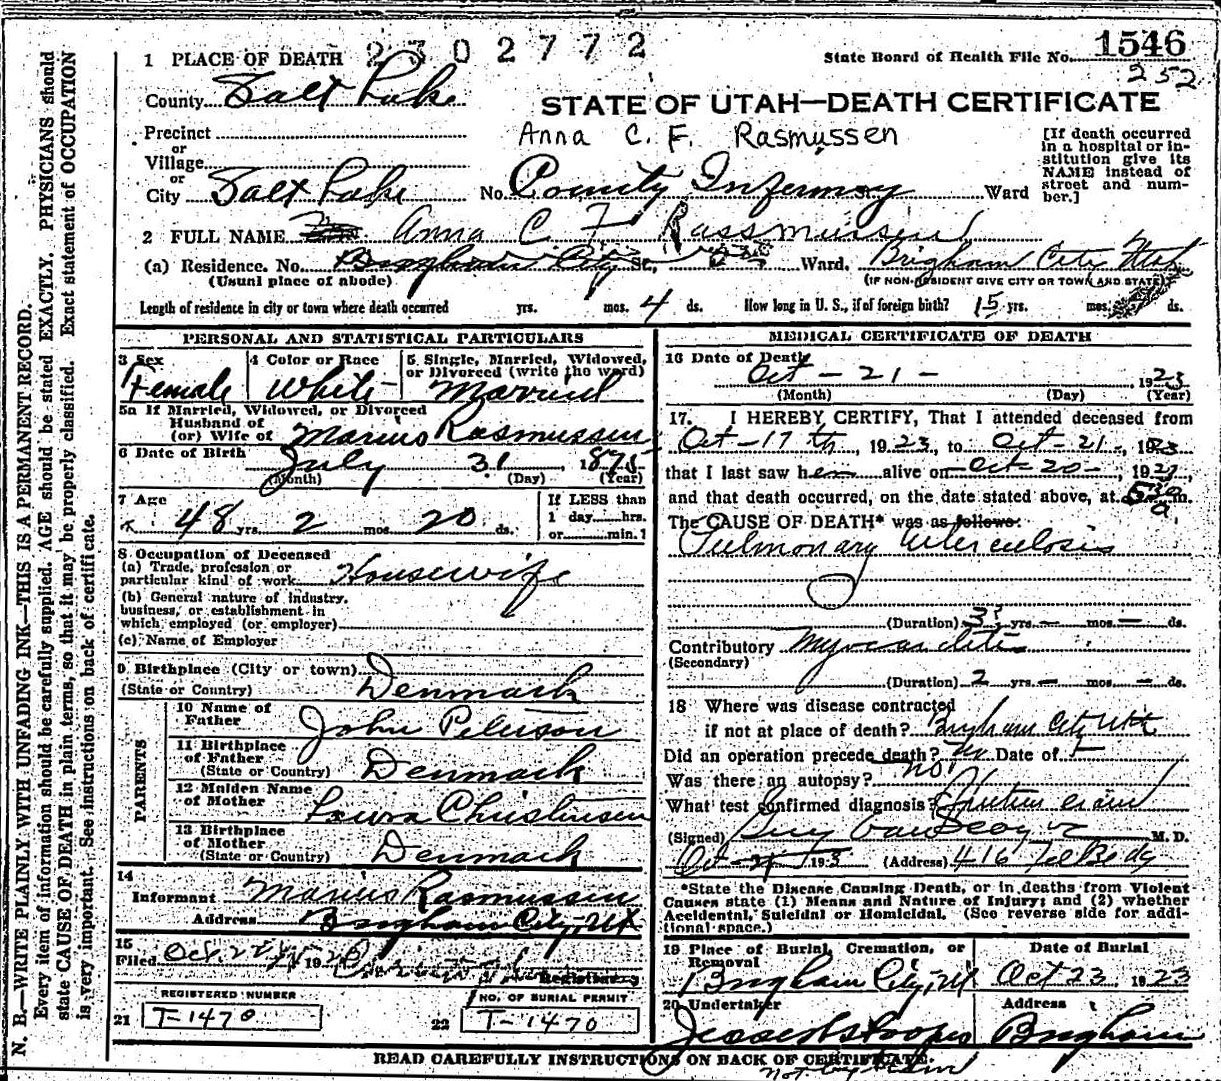 2302772
1546
State Board of Health File No.
252
1 PLACE OF DEATH
County Salt Lake
STATE OF UTAH—DEATH CERTIFICATE
Precinct
or
Village
or
City Salt Lake
Anna C. F. Rasmussen
No. County Infermry St. Ward
[If death occurred
in a hospital or in-
stitution give its
NAME instead of
street and num-
ber.]
2 FULL NAME Anna C. F. Rassmussen
(a) Residence. No. Bingham City St., Ward. Brigham City Utah
(Usual place of abode)
(IF NON-RESIDENT GIVE CITY OR TOWN AND STATE)
Length of residence in city or town where death occurred yrs. mos. 4 ds. How long in U. S., if of foreign birth? 15 yrs. mos. ds.
PERSONAL AND STATISTICAL PARTICULARS
3 Sex
Female
4 Color or Race
White
5 Single, Married, Widowed,
or Divorced (write the word)
Married
5a If Married, Widowed, or Divorced
Husband of
(or) Wife of Marius Rasmussen
6 Date of Birth July 31, 1875
(Month) (Day) (Year)
7 Age
48 yrs. 2 mos. 20 ds.
If LESS than
1 day......hrs.
or......min.?
8 Occupation of Deceased
(a) Trade, profession or
particular kind of work Housewife
(b) General nature of industry,
business, or establishment in
which employed (or employer)
(c) Name of Employer
9 Birthplace (City or town)
(State or Country) Denmark
PARENTS
10 Name of
Father John Peterson
11 Birthplace
of Father
(State or Country) Denmark
12 Maiden Name
of Mother Laura Christensen
13 Birthplace
of Mother
(State or Country) Denmark
14
Informant Marius Rasmussen
Address Brigham City, Ut
15
Filed Oct. 192
Registrar
REGISTERED NUMBER
21 T-1470
NO. OF BURIAL PERMIT
22 T-1470
MEDICAL CERTIFICATE OF DEATH
16 Date of Death
Oct - 21 - 1923
(Month) (Day) (Year)
17. I HEREBY CERTIFY, That I attended deceased from
Oct - 17 th, 1923, to Oct - 21 -, 1923
that I last saw her alive on Oct - 20 -, 1923,
and that death occurred, on the date stated above, at 530 a m.
The CAUSE OF DEATH* was as follows:
Pulmonary tuberculosis
(Duration) 3 yrs. — mos. — ds.
Contributory Myocarditis
(Secondary)
(Duration) 2 yrs. — mos. — ds.
18 Where was disease contracted
if not at place of death? Brigham City Utt
Did an operation precede death? No Date of —
Was there an autopsy? no
What test confirmed diagnosis? Sputum exam
(Signed) Guy Van M. D.
Oct - 21 1923 (Address) 416
*State the Disease Causing Death, or in deaths from Violent
Causes state (1) Means and Nature of Injury; and (2) whether
Accidental, Suicidal or Homicidal. (See reverse side for addi-
tional space.)
19 Place of Burial, Cremation, or
Removal
Brigham City, Ut
Date of Burial
Oct 23 1923
20 Undertaker
Address
Brigham
READ CAREFULLY INSTRUCTIONS ON BACK OF CERTIFICATE.
N. B.—WRITE PLAINLY WITH UNFADING INK—THIS IS A PERMANENT RECORD.
Every item of information should be carefully supplied. AGE should be stated EXACTLY. PHYSICIANS should
state CAUSE OF DEATH in plain terms, so that it may be properly classified. Exact statement of OCCUPATION
is very important. See instructions on back of certificate.